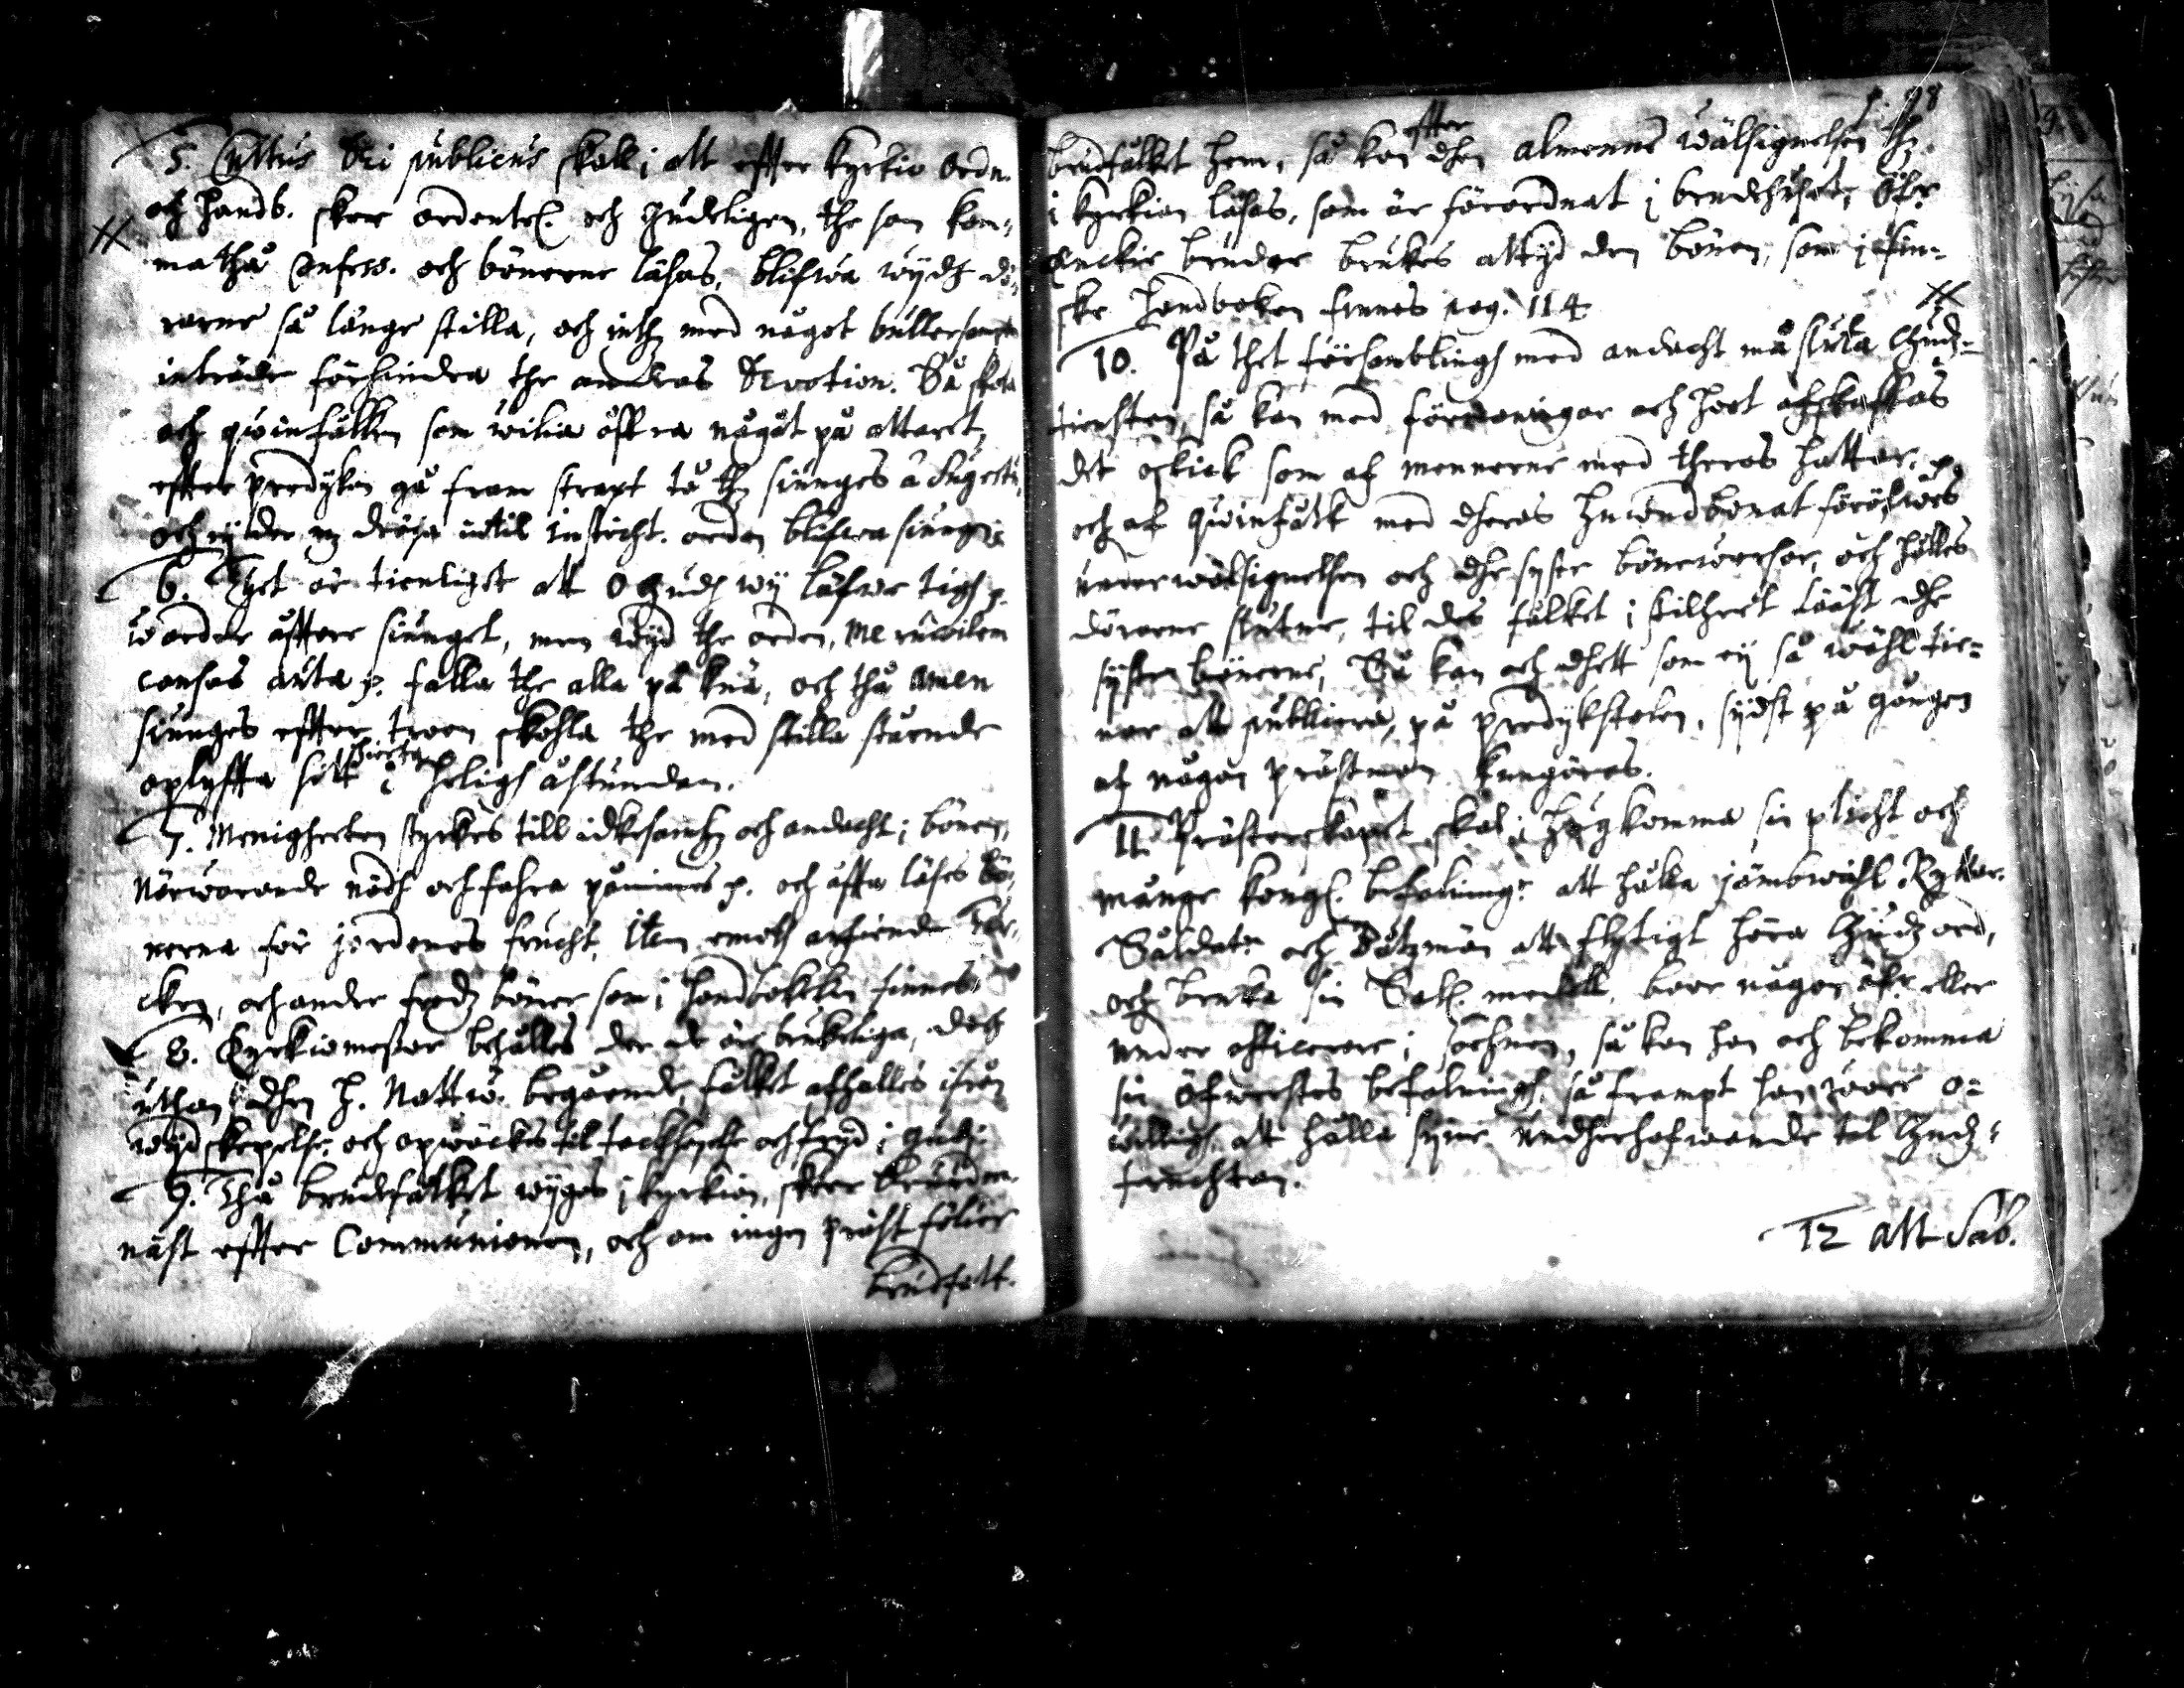 5. Cultus Dei publicus skall i alt effter kyrkio ordn.
och handb. skee ordentel. och gudeligen, the som kom-
ma thå Confess. och bönerne läsas, blifwa widh dö-
rarne så länge stilla, och inthz med något bullersampt
inträde förhindra the andras Devotion. Så skola
och qwinfålken som wilia offra någåt på altaret,
effter predykan gå fram straxt tå thz siunges à Sugestu,
och ey der m; dröja intil insticht. orden blifwa siungne
6. Thet är tienligst att O gudh wij låfwe tigh p.
warder åfftare siunget, men widh the orden, me
p. falla the alla på knä, och thå Amen
siunges effter troon skohla the med stilla stående
oplyffta sitt hierta i heligh åstundan.
7. Menigheeten styrkes till idkesamhz och andacht i bönen,
Närwarande nödh och fahra påminnes p. och åffta läses bö-
nerna för jordenes frucht, Item emoth arfiende Tur-
cken, och andre fredz böner som i handbokken finnes.
8. Kyrkiomessor behålles der de äre brukeliga, doch
uthan dhen H. Nattw. begående, fålket afhålles ifrån
wijdskepelse, och opwäckes til tacksejelse och frijd i gudi.
9. Thå brudfålket wijges i kyrkian, skeer
näst effter Communionen, och om ingen präst fölier
brudfålk.
p. 98
brudfålket hem, så kan effter dhen almenne wälsignelsen thz
i kyrkian läsas, som är förordnat i brudehuset, öfr
Enckie brudar brukes altijd den bönen, som i fin-
ske handboken finnes pag. 114
10. På thet försambligh med andacht må sluta Gudz-
tiensten, så kan med förmaningar och hoot afskaffas
det oskick som af mennerne med theras hattar, p.
och af qwinfålk med dheras hufwudbonat föröfwes
under wälsignelsen och dhe syste bönewersar, och hålles
dörarne slutne, til des fålket i stilheet läsit dhe
systen bönerne, Så kan och dhett som ey så wähl tie-
nar att publicera, på predykstolen, sidst på gången
af någon prästman kungöras.
11. Prästerskapet skal i hogkomma sin plicht och
många Kongl. befalning:r att hålla jämbwähl Ryttar.
Såldater och Båtzmän att flytigt höra Gudz ord,
och bruka sin Sal. medell, boor någon öfr eller
under officerare i sochnen, så kan han och bekomma
sin öfwerstes befalningh, så frampt han woor o-
willigh att hålla syne undherhafwande tal Gudz-
fruchtan.
12 Att Sab.